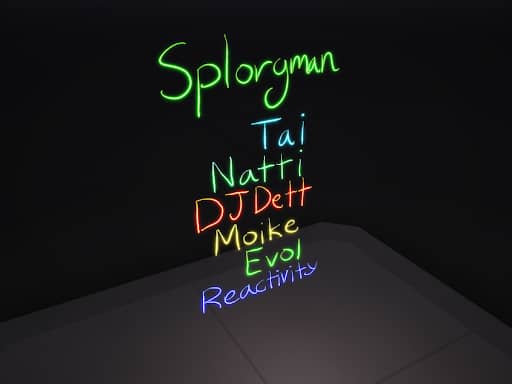 Splorgman
Tai
Natti
DJ Dett
Moike
Evol
Reactivity